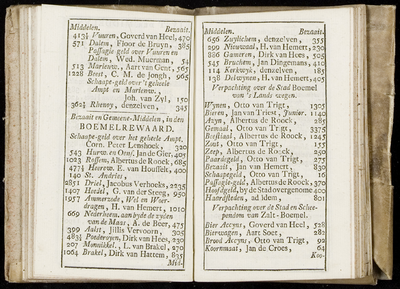 Middelen. Bezaait.
413½ Vuuren, Goverd van Heel, 470
571 Dalem, Floor de Bruyn, 385
Passagie geld over Vuuren en
Dalem, Wed. Muerman, 54
513 Marienw., Aart van Gent, 565
1228 Beest, C. M. de Jongh, 965
Schaape-geld over 't geheele
Ampt en Marienw.,
Joh. van Zyl, 150
362½ Rhenoy, denzelven, 345
Bezaait en Gemeene-Middelen, in den
BOEMELREWAARD.
Schaape-geld over het geheele Ampt,
Corn. Peter Lembock, 320
543 Hurw. en Oens., Jan de Gier, 405
1023 Rossem, Albertus de Roock, 685
477½ Heerew. E. van Houffelt, 400
140 St. Andries
2851 Driel, Jacobus Verhoeks, 2235
1407 Hedel, G. van der Steeg, 950
1957 Ammerzode, Wel en Woer-
dragen, H. van Hemert, 1010
669 Nederhem. aan byde de zyden
van de Maas, K. de Beer, 475
399 Aalst, Jillis Vervoorn, 305
483½ Poederoyen, Dirk van Hees, 230
207 Monnikkel., L. van Brakel, 270
1064 Brakel, Dirk van Hattem, 835
Mid-
Middelen. Bezaait.
656 Zuylichem, denzelven, 355
299 Nieuwaal, H. van Hemert, 230
886 Gameren, Dirk van Hees, 505
545 Bruchem, Jan Dingemans, 410
114 Kerkwyk, denzelven, 185
738 Delwynen, H. van Hemert, 405
Verpachting over de Stad Boemel
van 's Lands wegen.
Wynen, Otto van Trigt, 1305
Bieren, Jan van Triest, Junior. 1140
Azyn, Albertus de Roock, 285
Gemaal, Otto van Trigt, 3375
Beestiaal, Albertus de Roock, 1245
Zout, Otto van Trigt, 155
Zeep, Albertus de Roock, 250
Paardegeld, Otto van Trigt, 275
Bezaait, Jan van Hemert, 830
Schaapegeld, Otto van Trigt, 16
Passagie-geld, Albertus de Roock, 370
Hoofdgeld, by de Stad overgenome 400
Haardsteden, ad idem, 801
Verpachting over de Stad en Schee-
pendom van Zalt-Boemel.
Bier Accyns, Goverd van Heel, 528
Bierwagen, Aart Soet, 282
Brood Accyns, Otto van Trigt, 92
Koornmaat, Jan de Croes, 64
Koo-